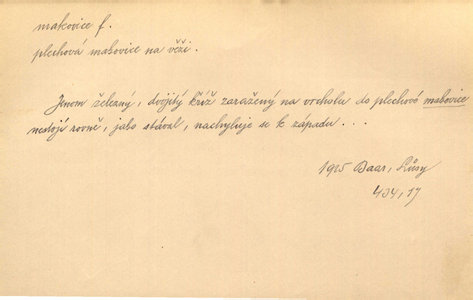 makovice f.
plechová makovice na věži.
Jenom železný, dvojitý kříž zaražený na vrcholu do plechové makovice
nestojí rovně, jako stával, nachyluje se k západu ...
1925 Baar, Lůsy
434, 17